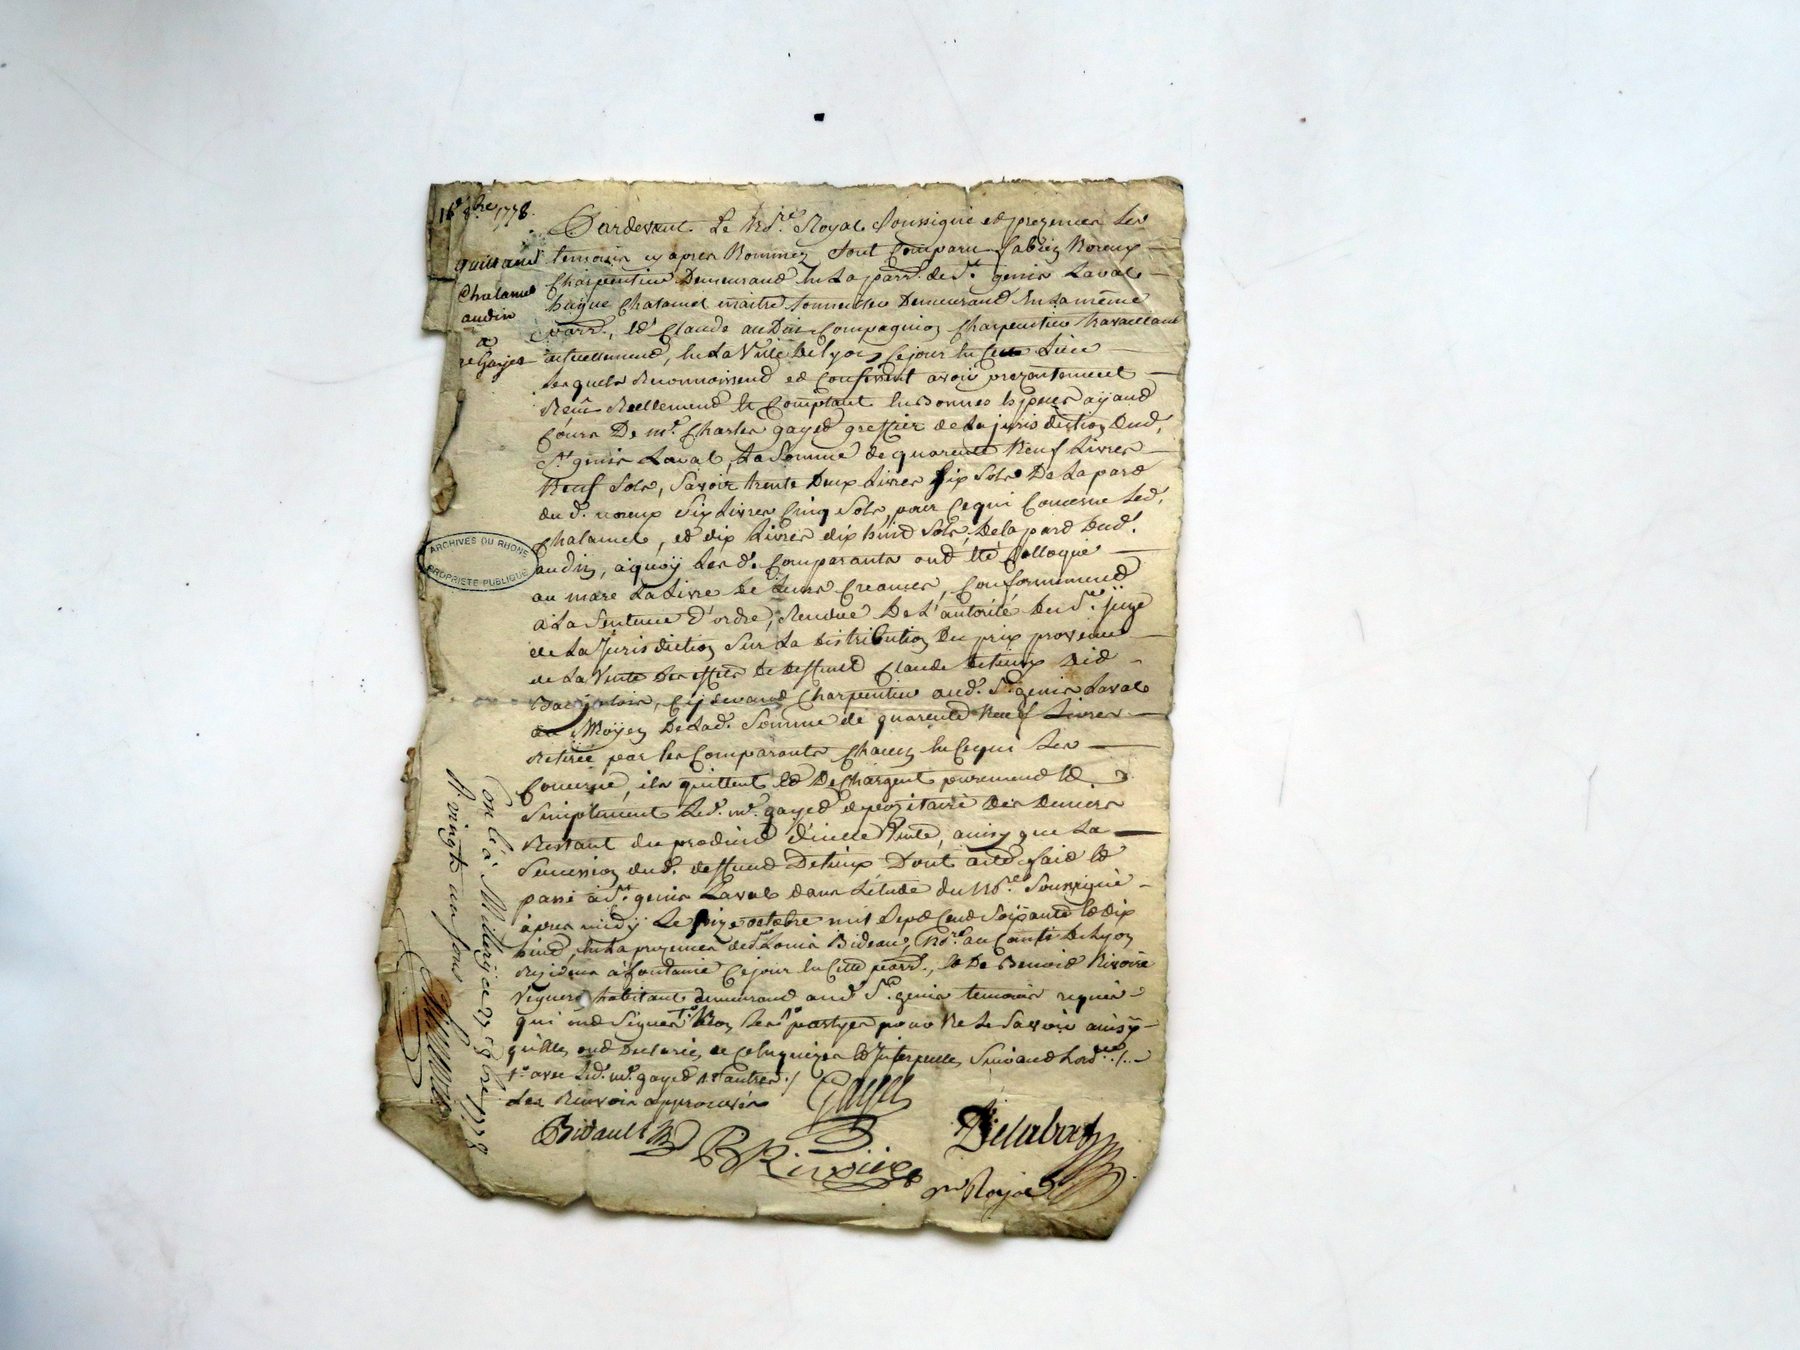 16e 8bre 1778.
quittance
Chalamel
audin
a
Me Gayet
Pardevant Le No.re Royal Soussigné et presences Les
temoins cy apres Nommez sont Comparu fabien Noreux
Charpentier Demeurand En La parr. de St. genis Laval
hugue Chalamel maitre tonnellier Demeurand En la même
parr., Et Claude audin Compagnion Charpentier travaillant
actuellement, En La Ville de Lyon, Cejour En Cette Lieu
Lesquels Reconnoissend et Confessent avoir prezentement
Reçû Reellemend Et Comptant En Bonnes Espeses ayand
Cours De me. Charles gayet greffier de La jurisdiction dud.
St. genis Laval, La Somme de quarente Neuf Livres
Neuf Sols, Savoir trente Deux Livres Six Sols De La pard
du d. noreux Six Livres Cinq Sols, pour Cequi Concerne Led.
Chalamel, et dix Livres dix huit Sols, De la pard Dud.
audin, aquoÿ Les d. Comparants ont Eté Colloqué
au marc La Livre de Leurs Creances, Conformemend
a La Sentence D'ordre, Rendue De L'autorité du Sr. juge
de La Jurisdiction Sur La Distribution Du prix provenant
de La Vente Des effets de deffunct Claude
Cydevant Charpentier aud. St. genis Laval
au Moÿen De Lad. Somme de quarente Neuf Livres
Retirée par les Comparants Chacun En Cequi Les
Concerne, ils quittent Et Dechargent purement Et
Simplement Led. me. gayet depozitaire Des Deniers
Restant du produit d'icelle Vente, ainsy que La
Succession dud. deffunct Dont acte fait Et
passé à St. genis Laval dans L'étude du No.re Soussigné
apres midÿ Le seize octobre mil Sept Cent Soixante Et dix
huit, En La presence de Sr. Louis Bideau, No.re au Comté De Lyon
Residend à fontaine Cejour En Cette parr., Et De Benoit Riviere
Vigneron habitant demeurand aud. St. genis temoins requis
qui ont Signé Non Les partyes pour Ne Le Savoir ainsy
quilles ont Declaré, de Ce Enquizes Et Interpellé, Suivand Lord.ce ./.
1° avec Led. me. gayet Et autres ./
Les Renvois approuvés
Gayet
Bidault
B Rivière
Delabat
n.re Royal
Con.lé à Millery ce 23 8bre 1778
R. vingt un sous
ARCHIVES DU RHONE
PROPRIETE PUBLIQUE